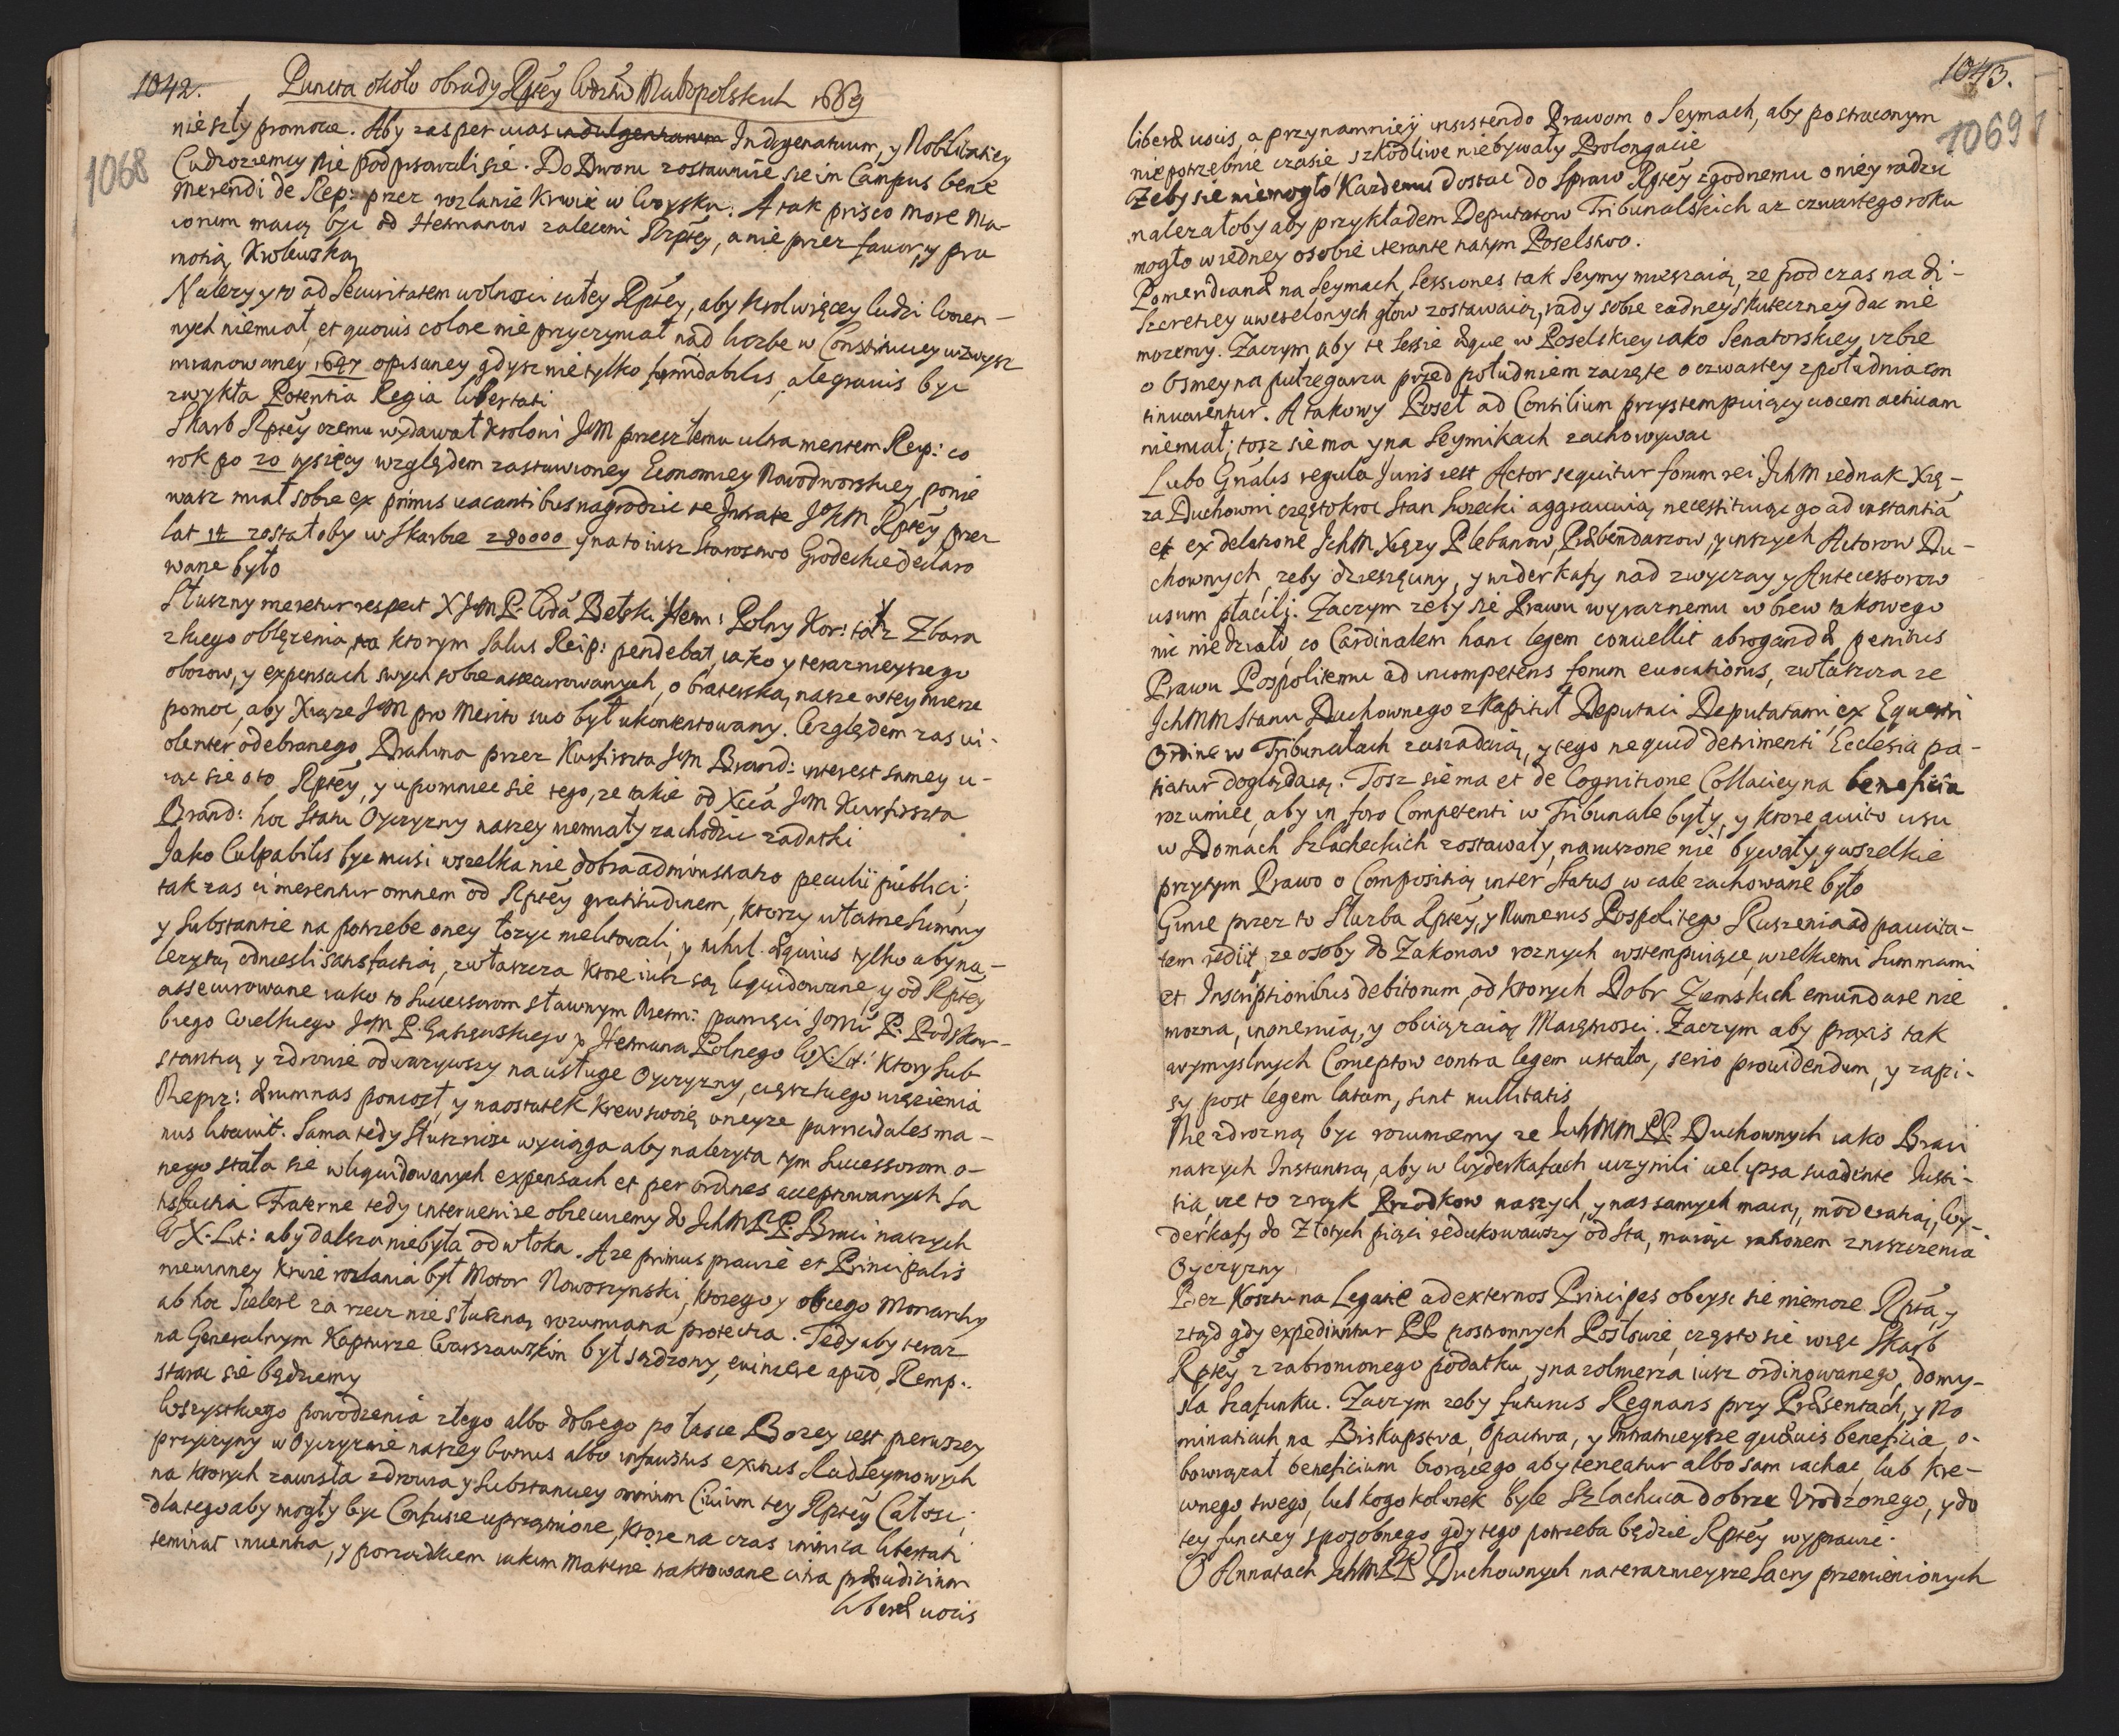 1042.
Puncta około obrady Rptey Wdztw Małopolskich 1669
1068
nie szły promocie. Aby zas per uias Indigenatuum, y Nobilitaciey
Cudzoziemcy nie podpisowali sie. Do Dworu zostawuie sie im Campus bene
merendi de Rep: przez rozlanie krwie w Woysku. A tak prisco more Ma-
iorum maią byc od Hetmanow zaleceni Rptey, a nie przez fauor, y pro
motią Krolewską
Nalezy y to ad Securitatem wolnosci całey Rptey, aby Krol więcey ludzi Woien-
nych niemiał, et quouis colore nie przyczyniał nad liczbe w Constituciey wzwysz
mianowaney 1647 opisaney gdysz nie tylko formidabilis, ale grauis byc
zwykła Potentia Regia libertati
Skarb Rptey czemu wydawał Kroloni JeM przeszłemu ultra mentem Reip: co
rok po 20 tysięcy względem zastawioney Economiey Nowodworskiey, ponie
wasz miał sobie ex primis uacantibus nagrodzic te Intrate JKM Rptey przez
lat 14 zostałoby w Skarbie 280000 y na to iusz Starostwo Grodeckie declaro
wane było
Słuszny meretur respect XJeM P. Wda Bełski Hetm: Polny Kor: ták z Zbara
zkiego oblęzenia, na ktorym Salus Reip: pendebat, iako y teraznieyszego
obozow, y expensach swych sobie assecurowanych, o braterską nasze w tey mierze
pomoc, aby Xiąze JeM pro merito suo był ukontentowany. Względem zas ui-
olenter odebranego Drahima przez Kurfirszta JeM Brand: interest samey u-
iąc sie o to Rptey, y upomniec sie tego, ze takie od Xcia JeM Kurfirszta
Brand: hoc statu Oyczyzny naszey niemiały zachodzic zadatki
Jako Culpabilis byc musi wszelka nie dobra administratio peculii publici;
tak zas ci merentur omnem od Rptey gratitudinem, ktorzy własne Summy
y Substantie na potrzebe oney łozyc nielitowali, y nihil æquius tylko aby na-
lezytą odniesli satisfactią, zwłaszcza ktore iusz są liquidowane, y od Rptey
assecurowane iako to Successorom sławnym Niesm: pamięci Jemci P. Podskar-
biego Wielkiego JeM P. Gąsiewskiego y Hetmana Polnego WX.Lit: ktory Sub-
stantią y zdrowie odwazywszy na usługe Oyczyzny, cięszkiego więzienia
Nieprz: ærumnas poniosł, y na ostatek krew swoię oneyze parricidales ma-
nus litauit. Sama tedy słusznosc wyciąga aby nalezyta tym Successorom o-
nego stała sie w liquidowanych expensach et per ordines acceptowanych sa
tisfactia Fraterne tedy interuenire obiecuiemy do JchMPP. Braci naszych
WX.Lit: aby dalsza niebyła odwłoka. A ze primus prawie et Principalis
niewinney krwie rozlania był Motor Nowoszynski, ktorego y obcego Monarchy
ab hoc scelere za rzecz nie słuszną rozumiana protectia. Tedy aby teraz
na Generalnym Kapturze Warszawskim był sądzony, euincere apud Remp:
starac sie będziemy
Wszystkiego powodzenia złego albo dobrego po łasce Bozey iest pierwszey
przyczyny w Oyczyznie naszey bonus albo infaustus exitus Rad Seymowych
na ktorych zawisła zdrowia y Substanciey omnium Ciuium tey Rptey Całosc;
dlatego aby mogły byc Confusie uprzątnione, ktore na czas inimica libertati
seminat inuentia, y porządkiem iakim materie traktowane citra præiudicium
liberæ uocis
1043.
1069
liberæ uocis, a przynamnieÿ insistendo Prawom o Seymach, aby po straconym
niepotrzebnie czasie, szkodliwe niebywały Prolongacie
Zeby sie niemogło Kazdemu dostac do Spraw Rptey zgodnemu o niey radzic
nalezałoby aby przykładem Deputatow Tribunalskich az czwartego roku
mogło w iedney osobie iterante natym Poselstwo.
Pomeridianæ na Seymach Sessiones tak Seymy mieszaią, ze pod czas na di-
szcretiey uweselonych głow zostawaiąc, rady sobie zadney skuteczney dac nie
mozemy. Zaczym aby te Sessie æque w Poselskiey iako Senatorskiey izbie
o Osmey na pułzegarzu przed południem zaczęte o czwartey z południa con
tinuarentur. A takowy Poseł ad Consilium przystempuiący uocem actiuam
niemiał; tosz sie ma y na Seymikach zachowywac
Lubo Gnalis regula Juris iest Actor sequitur forum rei JchM iednak Xię-
za Duchowni częstokroc Stan Swiecki aggrauuią necessituiąc go ad instantia
et ex delatione JchM Xięzy Plebanow, Præbendarzow, y inszych Actorow Du-
chownych, zeby dziesięciny, y widerkafy nad zwyczay y Antecessorow
usum płacili. Zaczym zeby sie Prawu wyraznemu w brew takowego
nic niedziało, co Cardinalem hanc legem conuellit abrogandæ penitus
Prawu Pospolitemu ad incompetens forum euocationis, zwłaszcza ze
JchMM Stanu Duchownego z Kapituł Deputaci Deputatami ex Equestri
Ordine w Tribunałach zasiadaią, y tego ne quid detrimenti Ecclesia pa-
tiatur doglądaią. Tosz sie ma et de Cognitione Collaciey na beneficia
rozumiec, aby in foro Competenti w Tribunale były, y ktore auito usu
w Domach Szlacheckich zostawały, naruszone nie bywały, y wszelkie
przytym Prawo o Compositią inter Status w cale zachowane było
Ginie przez to Słuzba Rptey, y Numerus Pospolitego Ruszenia ad paucita-
tem rediit, ze osoby do Zakonow roznych wstempuiące, wielkiemi Summami
et Inscriptionibus debitorum, od ktorych Dobr Ziemskich emundare nie
mozna, inonemią, y obciązaią Maiętnosci. Zaczym aby praxis tak
wymyslnych Conceptow contra legem ustała, serio prouidendum, y zapi-
sy post legem latam, sint nullitatis
Nie zdrozną byc rozumiemy ze JchMM PP. Duchownych iako Braci
naszych Instantią, aby w Wyderkafach uczynili uel ipsa suadente Justi-
tia, ze to z rąk Przodkow naszych, y nas samych maią, moderatią, Wy-
derkafy do Złotych pięci redukowawszy od sta, maiąc rationem zniszczenia
Oyczyzny
Bez Kosztu na Legatie ad externos Principes obeysc sie niemoze Rpta, y
ztąd gdy expediuntur PP. postronnych Posłowie, często sie więc Skarb
Rptey z zabronionego podatku, y na zołnierza iusz ordinowanego, domy-
sla szafunku. Zaczym zeby futurus Regnans przy Præsentach, y No
minatiach na Biskupstwa, Opactwa, y Intratnieysze quæuis beneficia, o-
bowiązał beneficium biorącego, aby teneatur albo sam iachac, lub kre-
wnego swego, lub kogo kolwiek byle Szlachcica dobrze Vrodzonego, y do
tey functiey sposobnego, gdy tego potrzeba będzie Rptey wyprawic.
O Annatach JchMPP Duchownych na terazneysze Sacry przemienionych